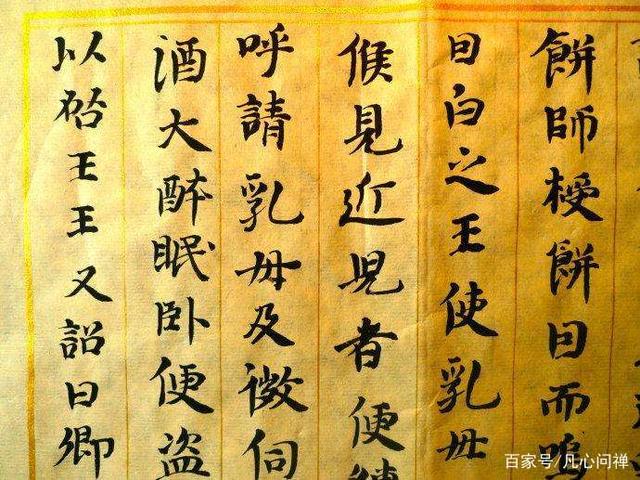 餅師授餅囙而嗚
囙白之王使乳母
候見近兒者便縛
呼請乳母及微伺
酒大醉眠卧便盗
以啓王王又詔曰卿
百家号/凡心问禅